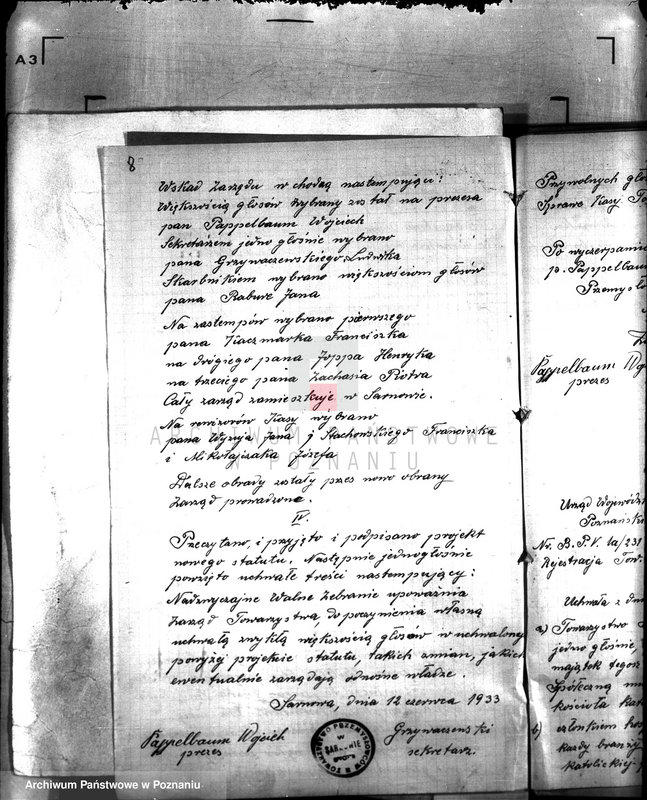 A3
8
Wskład Zarządu w chodzą nastempujący:
Większością głosów wybrany został na prezesa
pan Pappelbaum Wojciech
Sekretarzem jedno głośnie wybrano
pana Grzywaczewskiego Ludwika
Skarbnikiem wybrano większościom głosów
pana Jana
Na zastempów wybrano pierwszego
pana Kaczmarka Franciszka
na drógiego pana Joppa Henryka
na trzeciego pana Zachasia Piotra
Cały zarząd zamieszkuje w Sarnowie.
Na rewizorów Kasy wybrano
pana Jana j Stachowskiego Franciszka
i Mikołajczaka Józefa
Dalsze obrady zostały przes nowo obrany
Zarząd prowadzone.
IV.
Przeczytano, i przyjęto i podpisano projekt
nowego statutu. Następnie jednogłośnie
powzięto uchwałe treści nastempujący:
Nadzwyczajne Walne Zebranie upoważnia
Zarząd Towarzystwa, do poczynienia własną
uchwałą zwykłą większością głosów w uchwalonym
powyżej projekcie statutu, takich zmian, jakich
ewentualnie zarządają odnośne władze.
Sarnowa, dnia 12 czerwca 1933
Pappelbaum Wojciech
prezes
TOWARZYSTWO PRZEMYSŁOWCÓW
W
SARNOWIE
Grzywaczewski
sekretarz.
Przywolnych gło
Sprawe Kasy To
Po wyczerpaniu
p. Pappelbaum
Przemysło
Pappelbaum W
prezes
Urząd Wojewódz
Poznański
Nr. B.P.V. 4a/231
Rejestracja Tow.
Uchwała z dn
a) Towarzystwo
jedno głośnie,
majątek tegoż
Społeczną
kościoła kato
b) członkiem
każdy branży
katolickiej
ARCHIWUM PAŃSTWOWE
W POZNANIU
Archiwum Państwowe w Poznaniu